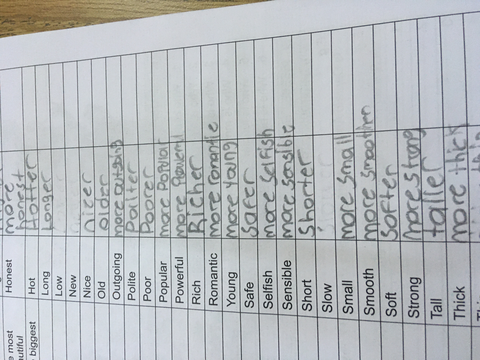 e most
autiful
Honest more
honest
e biggest
Hot Hotter
Long Longer
Low
New
Nice nicer
Old older
Outgoing more outgoing
Polite
Poor Poorer
Popular more
Powerful more
Rich Richer
Romantic more romantic
Young more young
Safe safer
Selfish more selfish
Sensible more sensible
Short shorter
Slow
Small more small
Smooth more smoothen
Soft softer
Strong more strong
Tall taller
Thick more thick